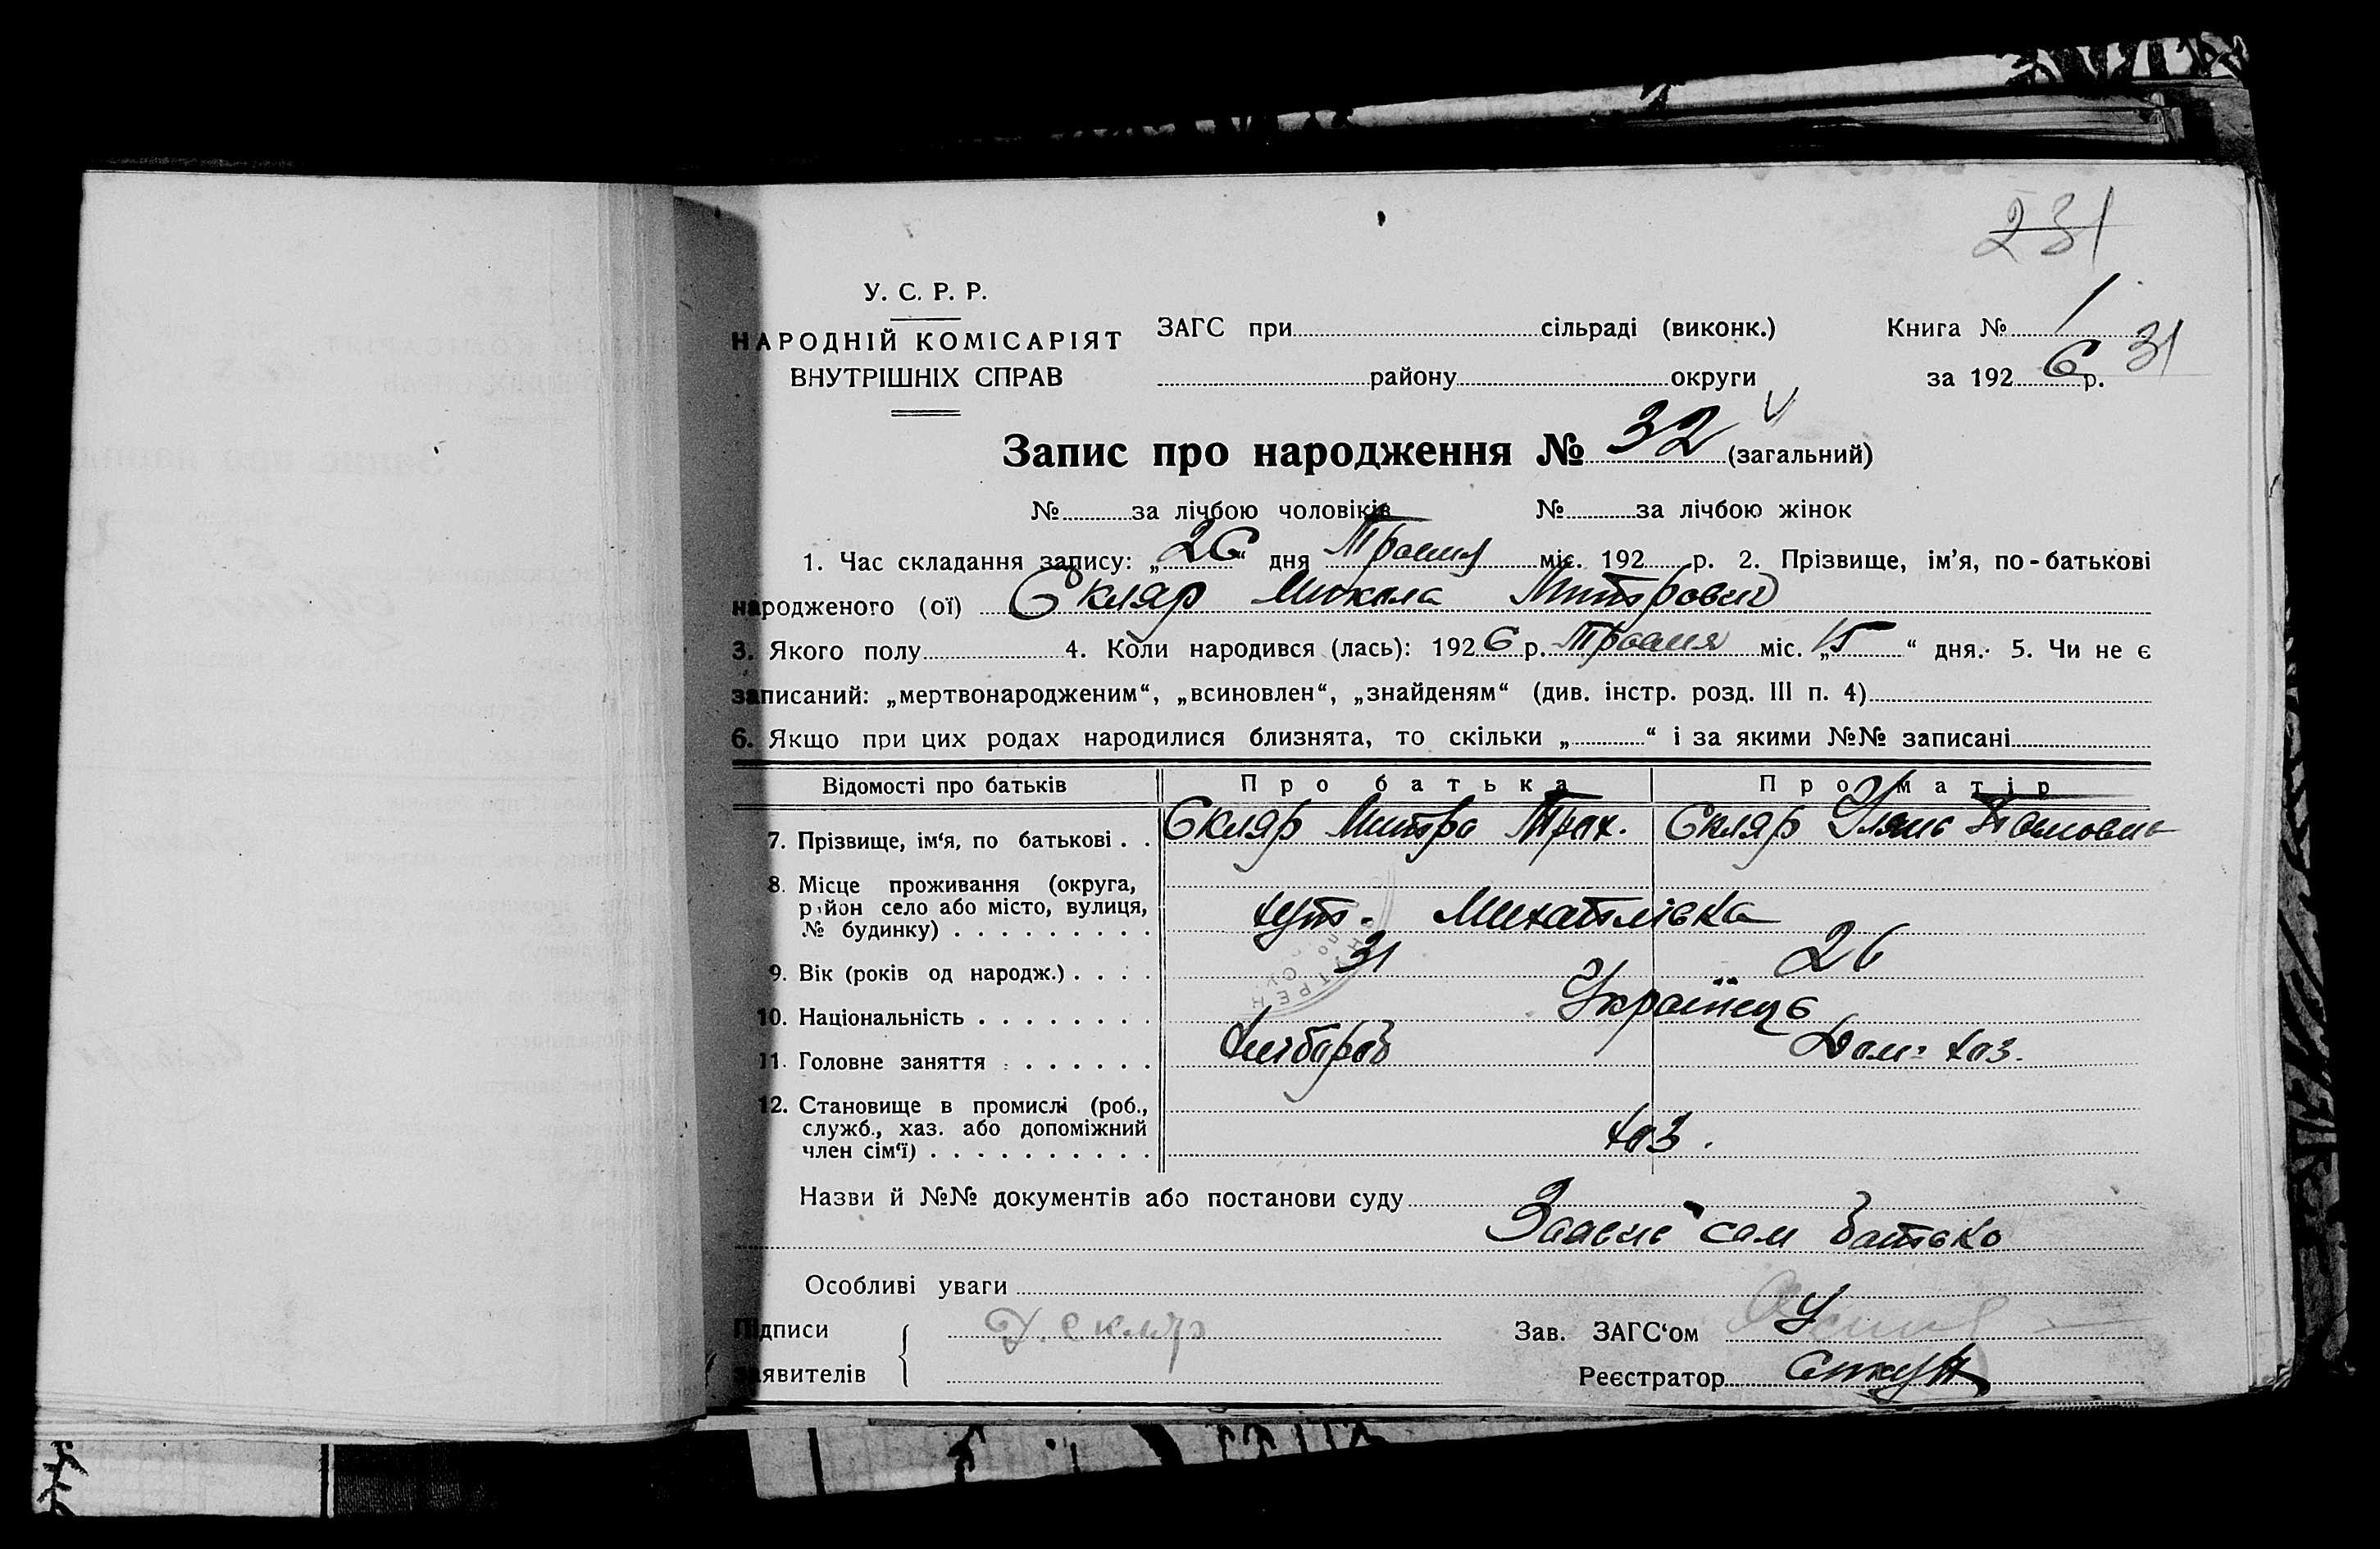 231
У. С. Р. Р.
НАРОДНІЙ КОМІСАРІЯТ
ВНУТРІШНІХ СПРАВ
ЗАГС при сільраді (виконк.)
району округи
Книга № 1
за 192 6 р.
31
Запис про народження № 32 (загальний)
№ за лічбою чоловіків № за лічбою жінок
1. Час складання запису: „26“ дня Травня міс. 192 р. 2. Прізвище, ім’я, по-батькові
народженого (ої) Скляр Микола Митрович
3. Якого полу 4. Коли народився (лась): 1926 р. Травня міс. „15“ дня. 5. Чи не є
записаний: „мертвонародженим“, „всиновлен“, „знайденям“ (див. інстр. розд. III п. 4)
6. Якщо при цих родах народилися близнята, то скільки „ “ і за якими №№ записані
Відомості про батьків Про батька Про матір
7. Прізвище, ім‘я, по батькові . . Скляр Митро Трох. Скляр Уляна
8. Місце проживання (округа,
район село або місто, вулиця,
№ будинку) хут. Михайлівка
9. Вік (років од народж.) 31 26
10. Національність Українець
11. Головне заняття Хлібороб Дом. хаз.
12. Становище в промислі (роб.,
служб., хаз. або допоміжний
член сім‘ї) хаз.
Назви й №№ документів або постанови суду
Заявив сам батько
Особливі уваги
Підписи
заявителів
Скляр
Зав. ЗАГС‘ом
Реєстратор